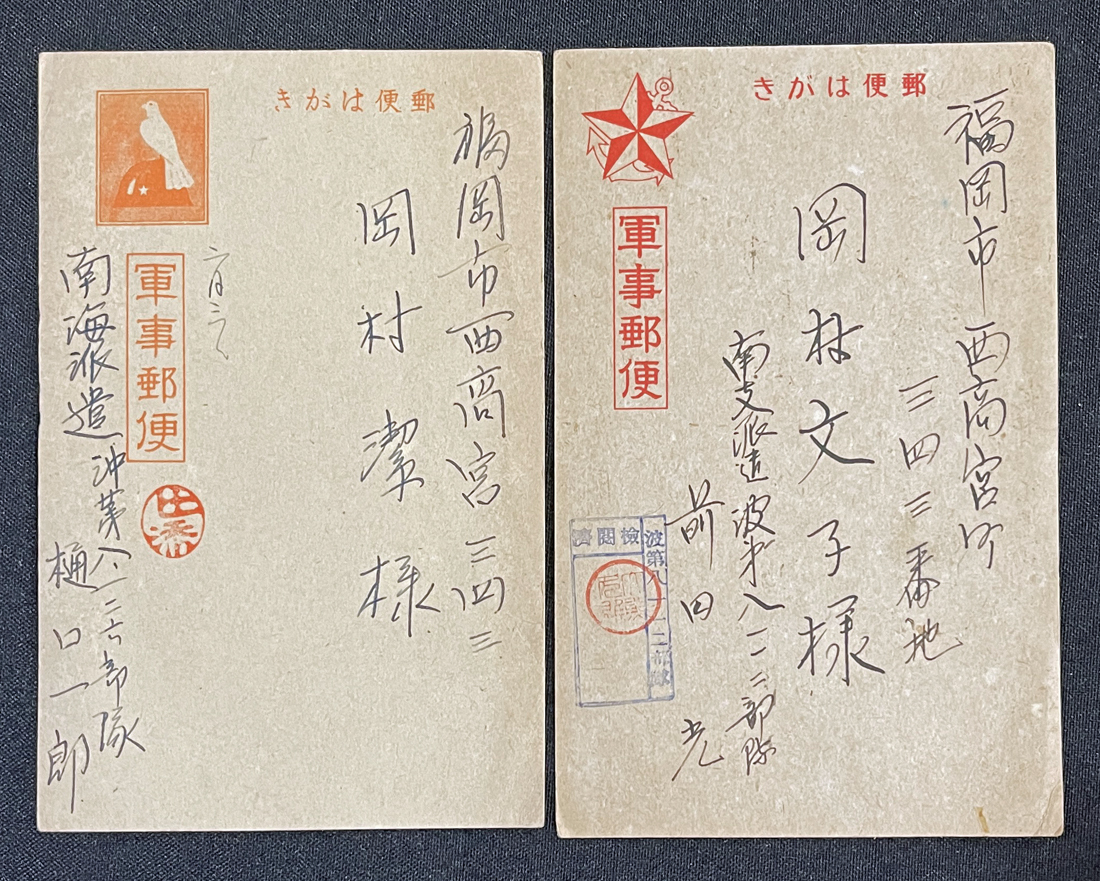 郵便はがき
福岡市西商宮三四三
岡村潔様
軍事郵便
南海派遣沖第八一二六部隊
樋口一郎
郵便はがき
福岡市西商宮町
三四三番地
岡村文子様
軍事郵便
南支派遣波第八一一二部隊
前田 光
檢閲濟
波第八一一二部隊